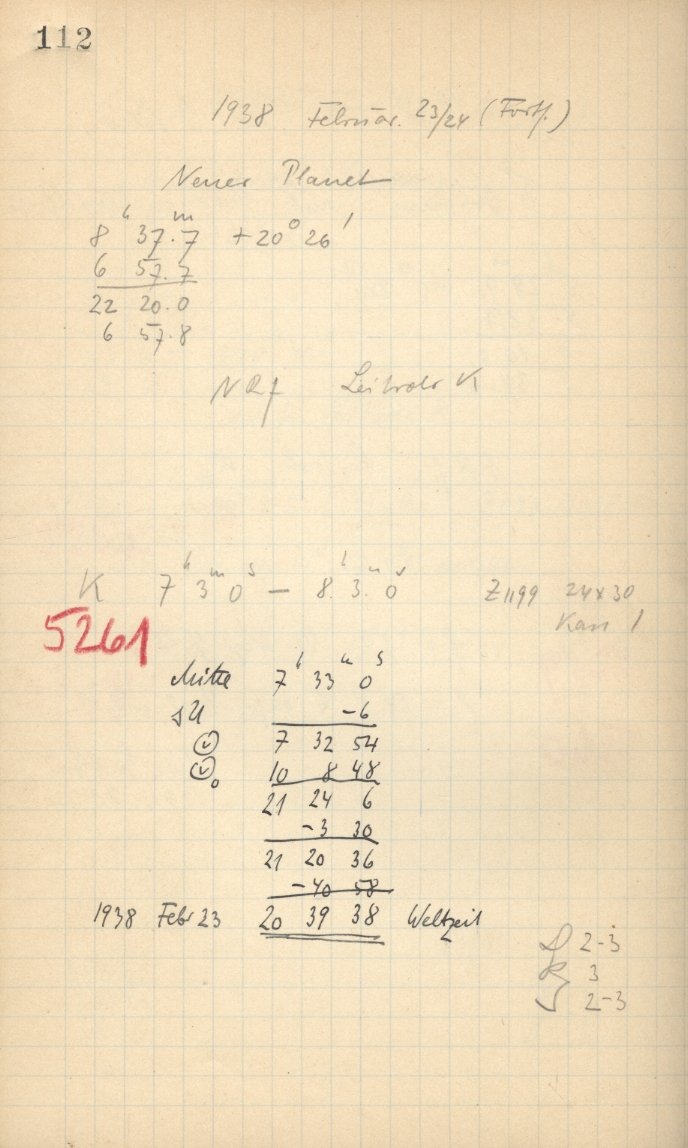 112
1938 Februar. 23/24 (Forts.)
Neuer Planet
8ʰ 37.ᵐ7 +20° 26'
6 57.7
22 20.0
6 57.8
K 7ʰ 3ᵐ 0ˢ — 8.ʰ 3.ᵐ 0ˢ Z1199 24x30
Kass 1
5261
Mitte 7ʰ 33ᵐ 0ˢ
-6
7 32 54
10 8 48
21 24 6
-3 30
21 20 36
-40 58
1938 Febr 23 20 39 38 Weltzeit
2-3
3
2-3